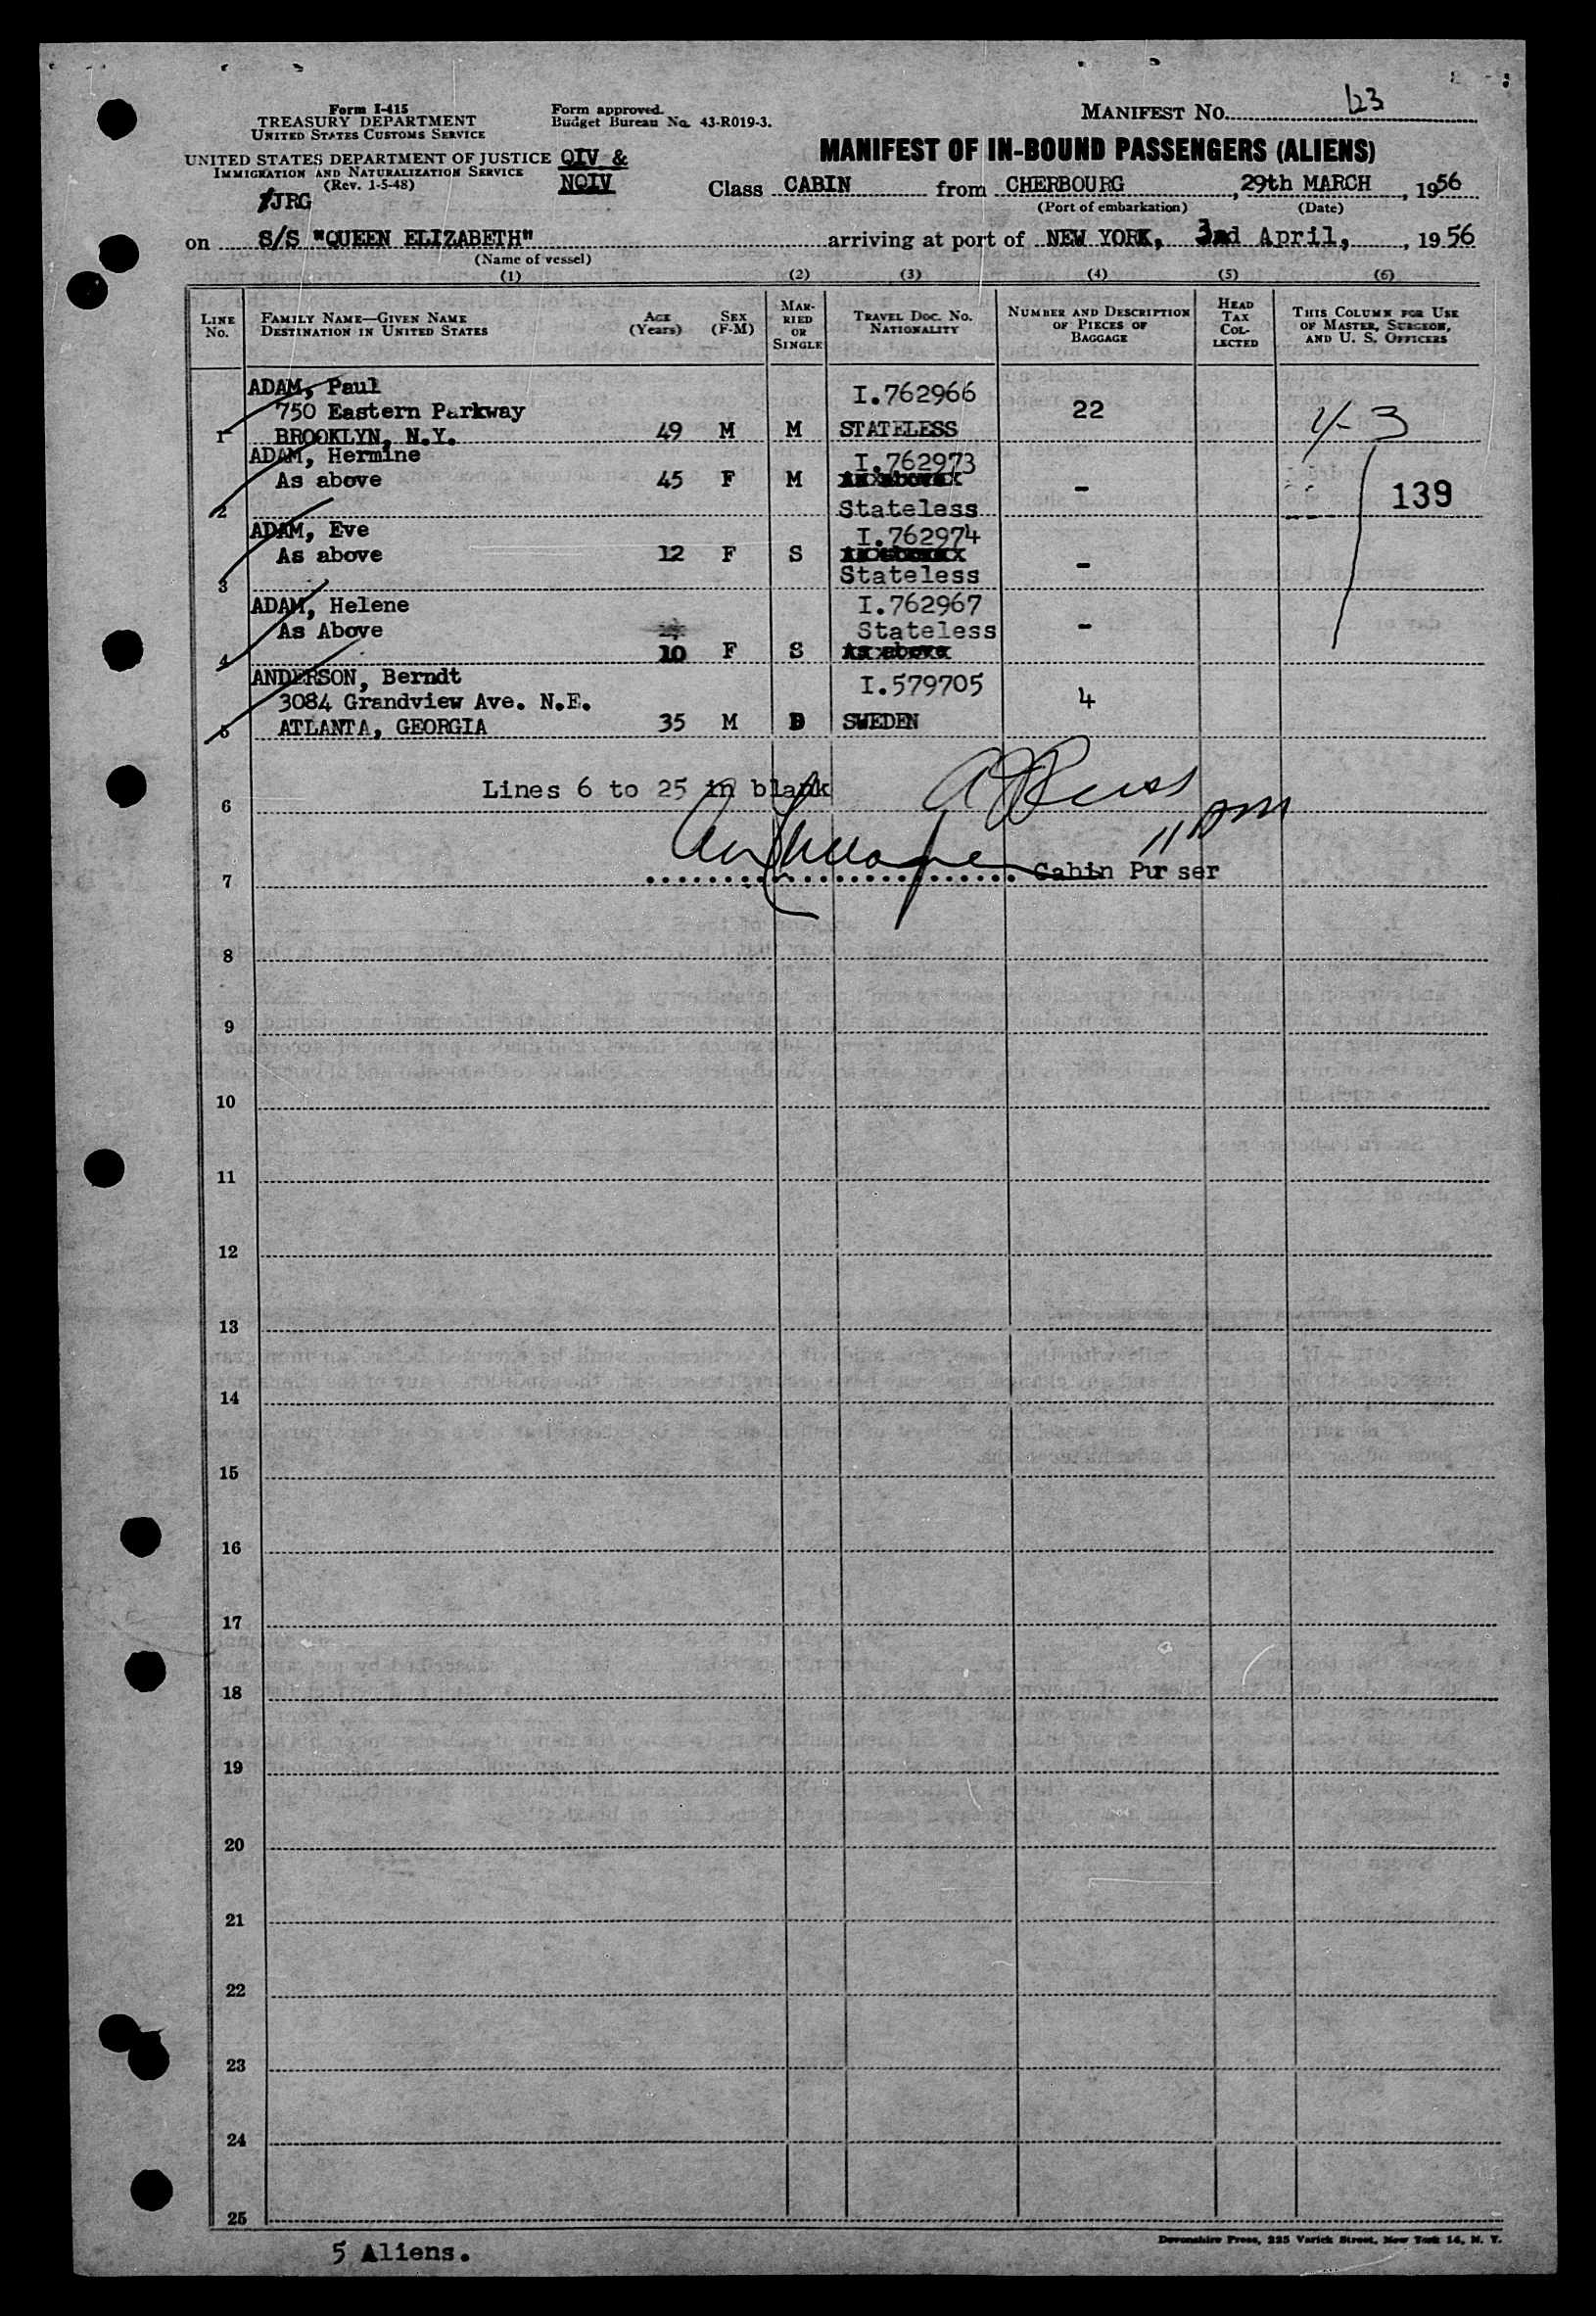 Form I-415
TREASURY DEPARTMENT
UNITED STATES CUSTOMS SERVICE
Form approved.
Budget Bureau No. 43-R019-3.
MANIFEST NO. 123
UNITED STATES DEPARTMENT OF JUSTICE
IMMIGRATION AND NATURALIZATION SERVICE
(Rev. 1-5-48)
QIV &
NQIV
JRG
MANIFEST OF IN-BOUND PASSENGERS (ALIENS)
Class CABIN from CHERBOURG, 29th MARCH, 1956
(Port of embarkation) (Date)
on S/S "QUEEN ELIZABETH" arriving at port of NEW YORK, 3rd April, 1956
(Name of vessel)
(1) (2) (3) (4) (5) (6)
LINE NO.
FAMILY NAME—GIVEN NAME
DESTINATION IN UNITED STATES
AGE (Years)
SEX (F-M)
MARRIED OR SINGLE
TRAVEL DOC. NO.
NATIONALITY
NUMBER AND DESCRIPTION OF PIECES OF BAGGAGE
HEAD TAX COLLECTED
THIS COLUMN FOR USE OF MASTER, SURGEON, AND U. S. OFFICERS
ADAM, Paul I.762966
750 Eastern Parkway 22
1 BROOKLYN, N.Y. 49 M M STATELESS
4-3
ADAM, Hermine I.762973
As above 45 F M As above -
2 Stateless
139
ADAM, Eve I.762974
As above 12 F S As above -
3 Stateless
ADAM, Helene I.762967
As Above Stateless -
4 10 F S As above
ANDERSON, Berndt I.579705
3084 Grandview Ave. N.E. 4
5 ATLANTA, GEORGIA 35 M D SWEDEN
Lines 6 to 25 in blank
6
11 PM
7 Cabin Purser
8
9
10
11
12
13
14
15
16
17
18
19
20
21
22
23
24
25
5 Aliens.
Devonshire Press, 225 Varick Street, New York 14, N. Y.